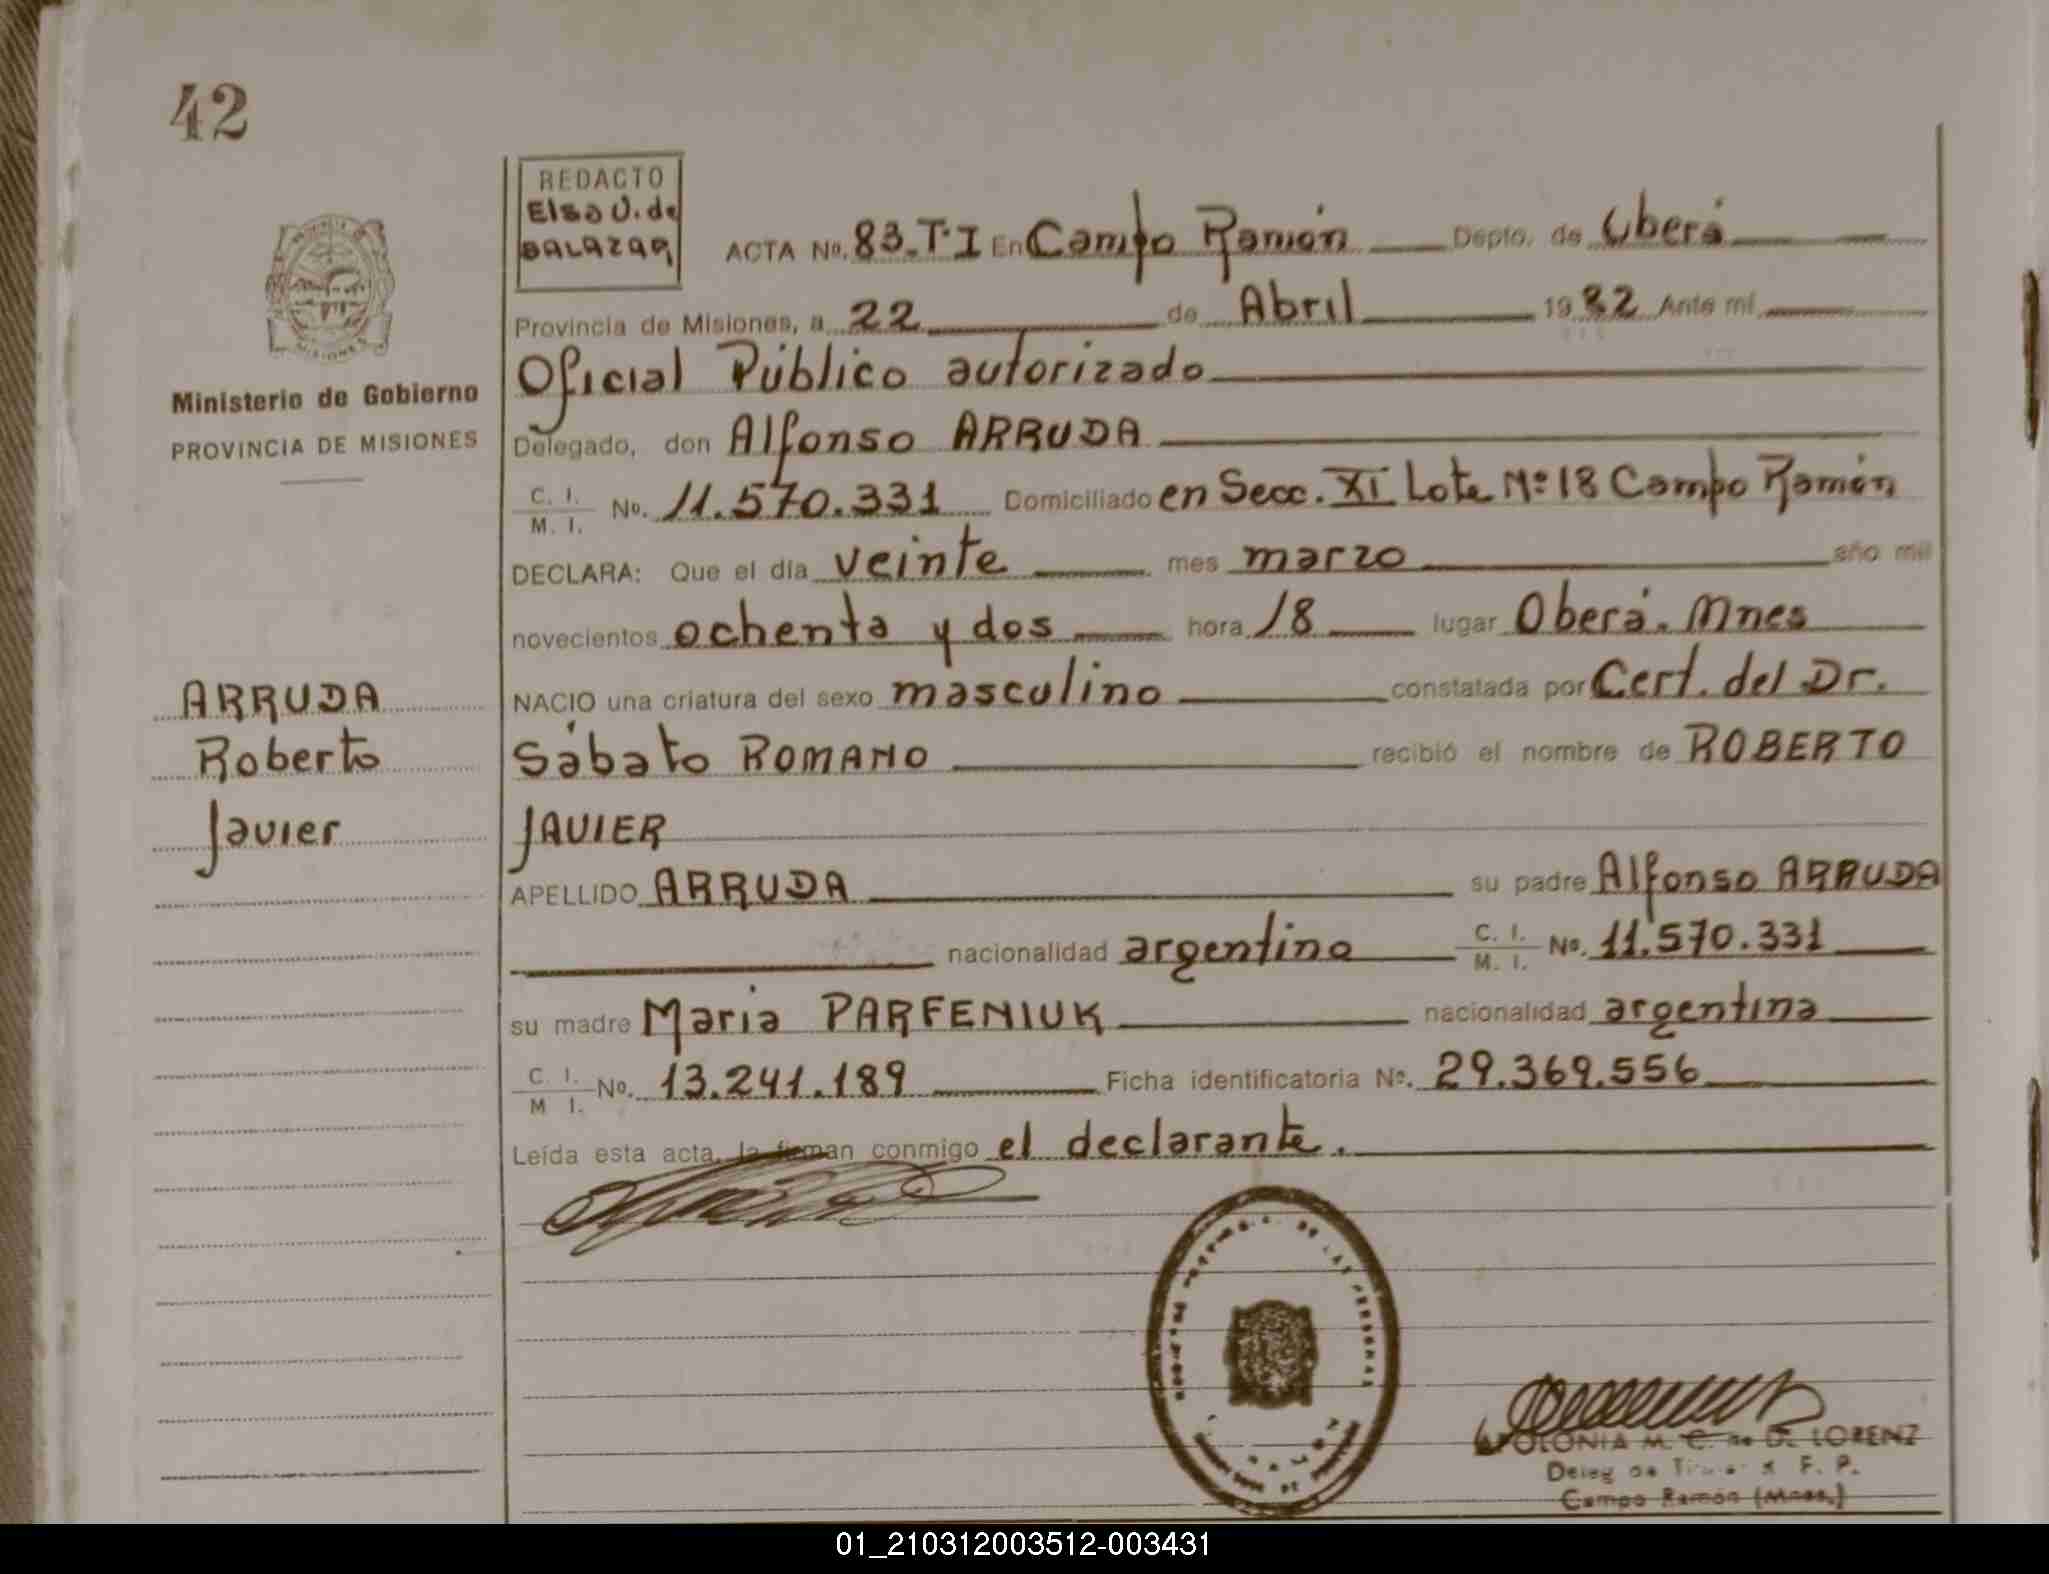 42
REDACTO
Elsa U. de
BALAZAR
ACTA No. 83.T.I En Campo Ramón Depto. de Oberá
Provincia de Misiones, a 22 de Abril 1982 Ante mí
Oficial Público autorizado
Ministerio de Gobierno
PROVINCIA DE MISIONES
Delegado, don Alfonso ARRUDA
C. I.
M. I. No. 11.570.331 Domiciliado en Secc. XI Lote Nº 18 Campo Ramón
DECLARA: Que el día veinte mes marzo año mil
novecientos ochenta y dos hora 18 lugar Oberá. Mnes
NACIO una criatura del sexo masculino constatada por Cert. del Dr.
Sábato ROMANO recibió el nombre de ROBERTO
JAVIER
ARRUDA
Roberto
Javier
APELLIDO ARRUDA su padre Alfonso ARRUDA
nacionalidad argentino C. I.
M. I. No. 11.570.331
su madre Maria PARFENIUK nacionalidad argentina
C. I.
M I. No. 13.241.189 Ficha identificatoria Nº. 29.369.556
Leída esta acta, la firman conmigo el declarante.
DE LAS PERSONAS
POLONIA M. C. de D. LORENZ
Deleg de F. P.
Campo Ramón (Mnes.)
01_210312003512-003431